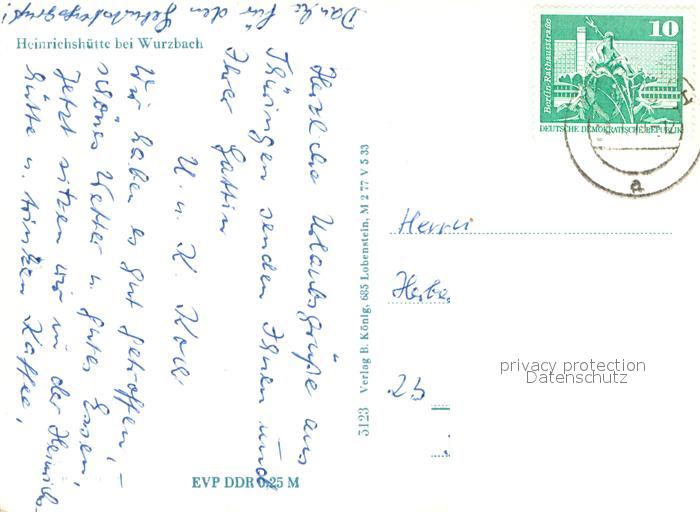 Danke für den Geburtstagsgruß!
Heinrichshütte bei Wurzbach
Herzliche Urlaubsgrüße aus
Thüringen senden Ihnen und
Ihrer Gattin
H. u. K.
Wir haben es gut getroffen, –
schönes Wetter u. gutes Essen,
Jetzt sitzen wir in der Heinrichs-
hütte u. trinken Kaffee,
5123 Verlag B. König, 685 Lobenstein, M 2 77 V 5 33
EVP DDR 0,25 M
10
Berlin-Rathausstraße
DEUTSCHE DEMOKRATISCHE REPUBLIK
a
Herrn
25
privacy protection
Datenschutz